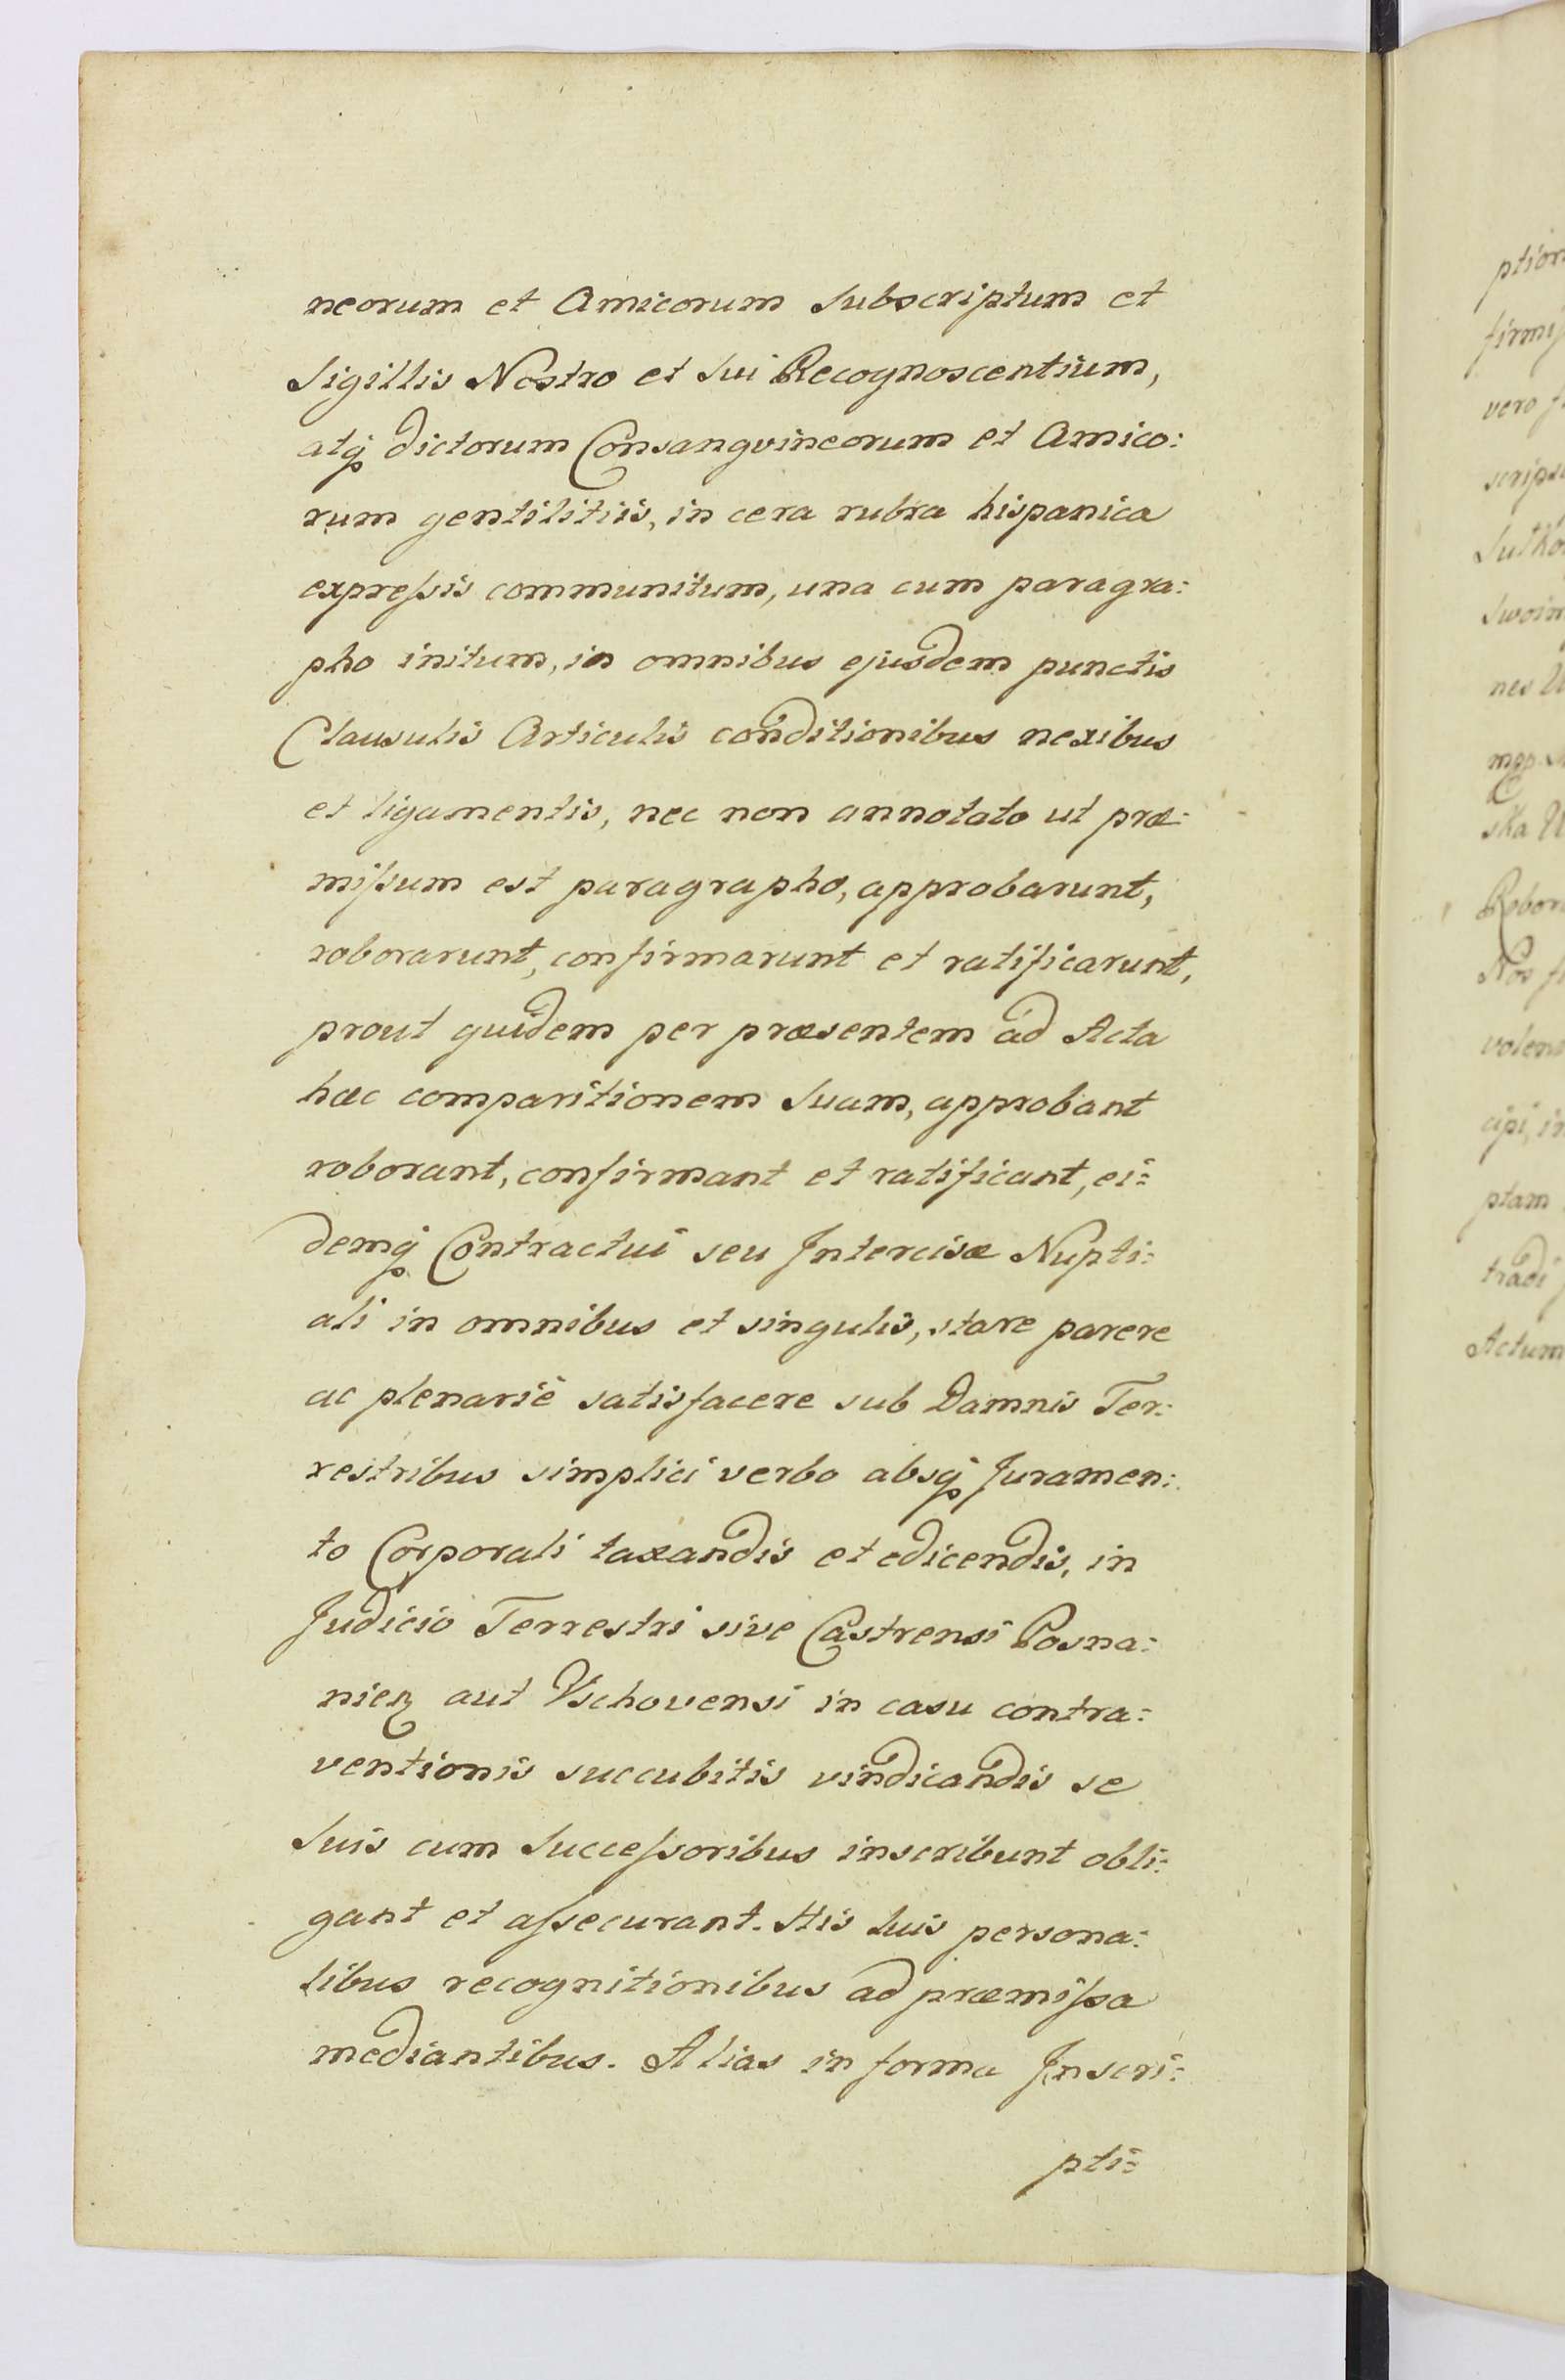 neorum et Amicorum Subscriptum et
Sigillis Nostro et Sui Recognoscentium,
atq́ꝫ dictorum Consangvineorum et Amico:
rum gentilitiis, in cera rubra hispanica
expreſsis communitum, una cum paragra:
pho initum, in omnibus ejusdem punctis
Clausulis Articulis conditionibus nexibus
et ligamentis, nec non annotato ut præ:
miſsum est paragrapho, approbarunt,
roborarunt, confirmarunt et ratificarunt,
prout quidem per præsentem ad Acta
hæc comparitionem Suam, approbant
roborant, confirmant et ratificant, ei:
demq́ꝫ Contractui seu Intercisæ Nupti:
ali in omnibus et singulis, stare parere
ac plenariè satisfacere sub Damnis Ter:
restribus simplici verbo absq́ꝫ Juramen:
to Corporali taxandis et edicendis, in
Judicio Terrestri sive Castrensi Posna:
nieꝫ aut Vschovensi in casu contra:
ventionis succubitis vindicandis se
Suis cum Succeſsoribus inscribunt obli:
gant et aſsecurant. His Suis persona:
libus recognitionibus ad præmiſsa
mediantibus. Alias in forma Inscri:
pti:
ption
firmiſ
vero f
scrips
Sutko
Swoin
nes U
mpp.
ska U
Robor
Nos f
volens
cipi, in
ptam
tradi
Actum